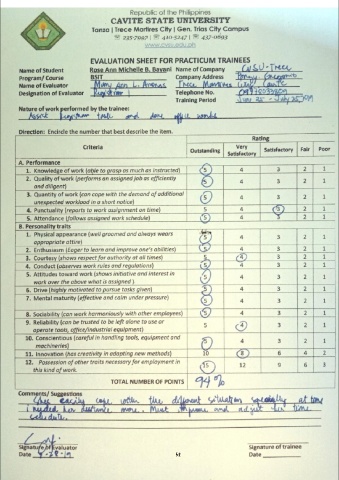 Republic of the Philippines
CAVITE STATE UNIVERSITY
Tanza | Trece Martires City | Gen. Trias City Campus
EVALUATION SHEET FOR PRACTICUM TRAINEES
Name of Student Rose Ann Michelle B. Bavani Name of Company CVSU-Trece
Program/ Course BSIT Company Address Brgy. Gregorio
Name of Evaluator Mary Ann L. Arenas Trece Martires City Cavite
Designation of Evaluator Registrar I Telephone No.
Training Period
Nature of work performed by the trainee:
Assist Registrar task and done office works
Direction: Encircle the number that best describe the item.
Criteria Rating
Outstanding Very Satisfactory Satisfactory Fair Poor
A. Performance
1. Knowledge of work (able to grasp as much as instructed) 5 4 3 2 1
2. Quality of work (performs an assigned job as efficiently and diligent) 5 4 3 2 1
3. Quantity of work (can cope with the demand of additional unexpected workload in a short notice) 5 4 3 2 1
4. Punctuality (reports to work assignment on time) 5 4 3 2 1
5. Attendance (follows assigned work schedule) 5 4 3 2 1
B. Personality traits
1. Physical appearance (well groomed and always wears appropriate attire) 5 4 3 2 1
2. Enthusiasm (Eager to learn and improve one's abilities) 5 4 3 2 1
3. Courtesy (shows respect for authority at all times) 5 4 3 2 1
4. Conduct (observes work rules and regulations) 5 4 3 2 1
5. Attitudes toward work (shows initiative and interest in work over the above what is assigned) 5 4 3 2 1
6. Drive (highly motivated to pursue tasks given) 5 4 3 2 1
7. Mental maturity (effective and calm under pressure) 5 4 3 2 1
8. Sociability (can work harmoniously with other employees) 5 4 3 2 1
9. Reliability (can be trusted to be left alone to use or operate tools, office/industrial equipment) 5 4 3 2 1
10. Conscientious (careful in handling tools, equipment and machineries) 5 4 3 2 1
11. Innovation (has creativity in adapting new methods) 10 8 6 4 2
12. Possession of other traits necessary for employment in this kind of work. 15 12 9 6 3
TOTAL NUMBER OF POINTS 94%
Comments/ Suggestions
She easily cope with the different situation specially at time
I needed her assistance more. Must improve and adjust her time
schedule.
Signature of Evaluator Signature of trainee
Date Date